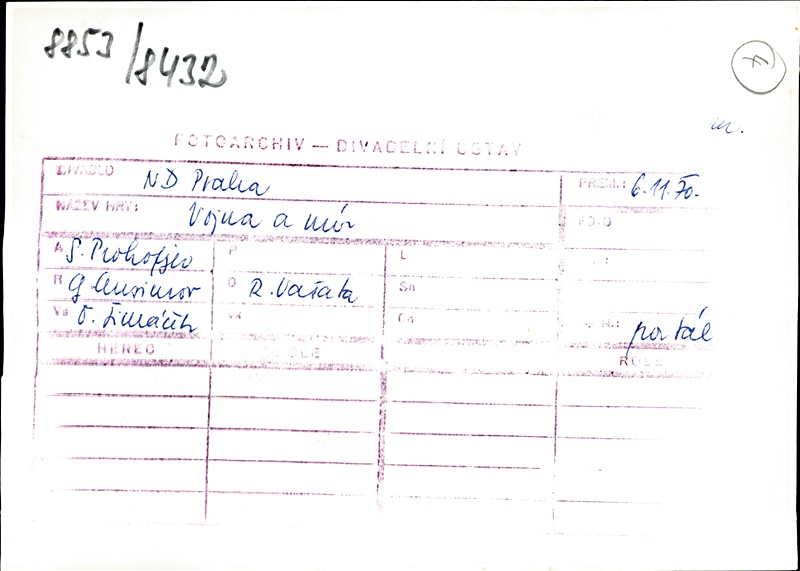 8853/8432
4
FOTOARCHIV — DIVADELNÍ ÚSTAV
DIVADLO ND Praha
PREM.: 6.11.70.
NÁZEV HRY: Vojna a mír
POŘ.
A S. Prokofjev P L
R G Ansimov D R. Vašata Sn
Vs O. Šimáček
portál
HEREC ROLE ROLE